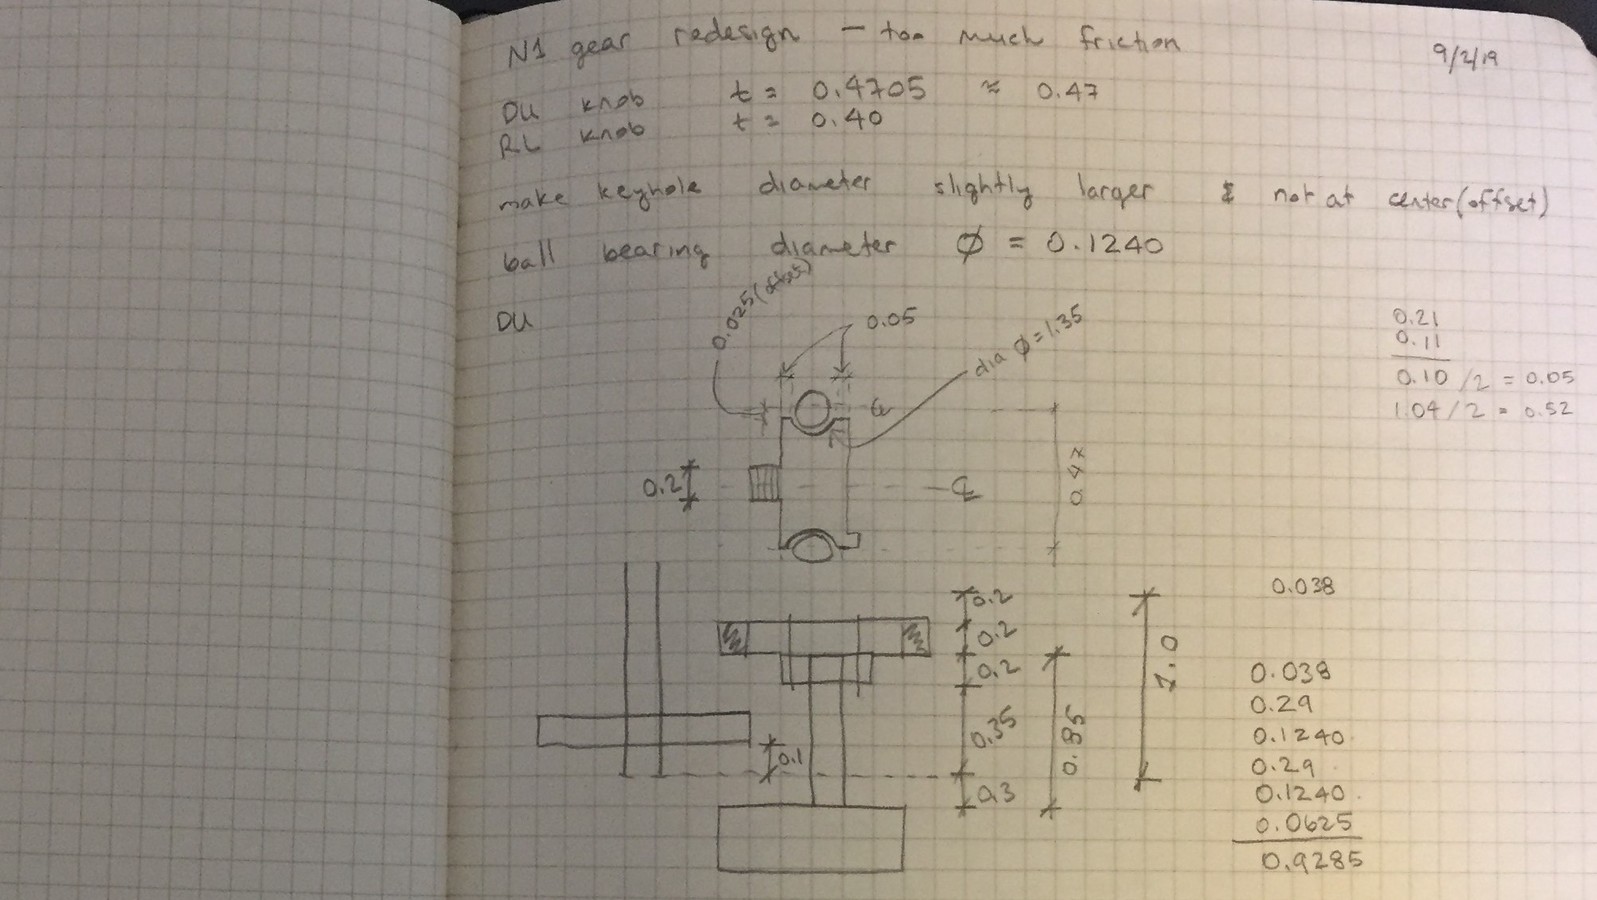 N1 gear redesign — too much friction
9/2/19
DU knob t = 0.4705 ≈ 0.47
RL knob t = 0.40
make keyhole diameter slightly larger & not at center (offset)
ball bearing diameter ϕ = 0.1240
DU
0.025 (offset)
0.05
dia ϕ = 1.35
0.21
0.11
0.10 / 2 = 0.05
1.04 / 2 = 0.52
℄
0.2
℄
0.2
0.2
0.2
0.35
0.3
0.1
0.85
1.0
0.038
0.038
0.29
0.1240
0.29
0.1240
0.0625
0.9285